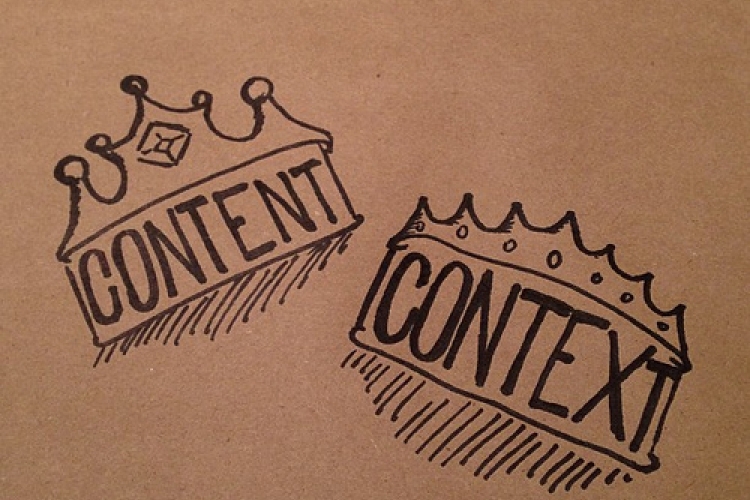 CONTENT
CONTEXT